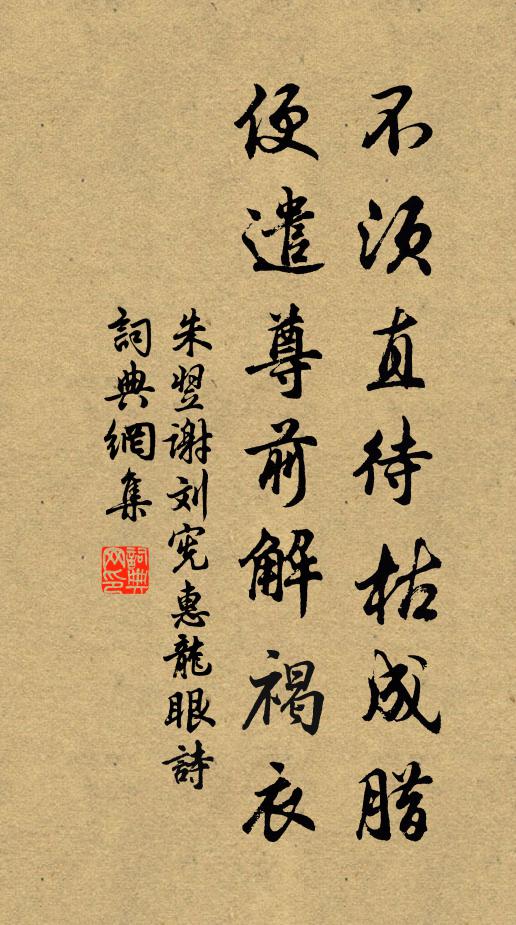 不须直待枯成腊
便遣尊前解褐衣
朱翌谢刘宪惠龍眼詩
詞典網集
詞典网印